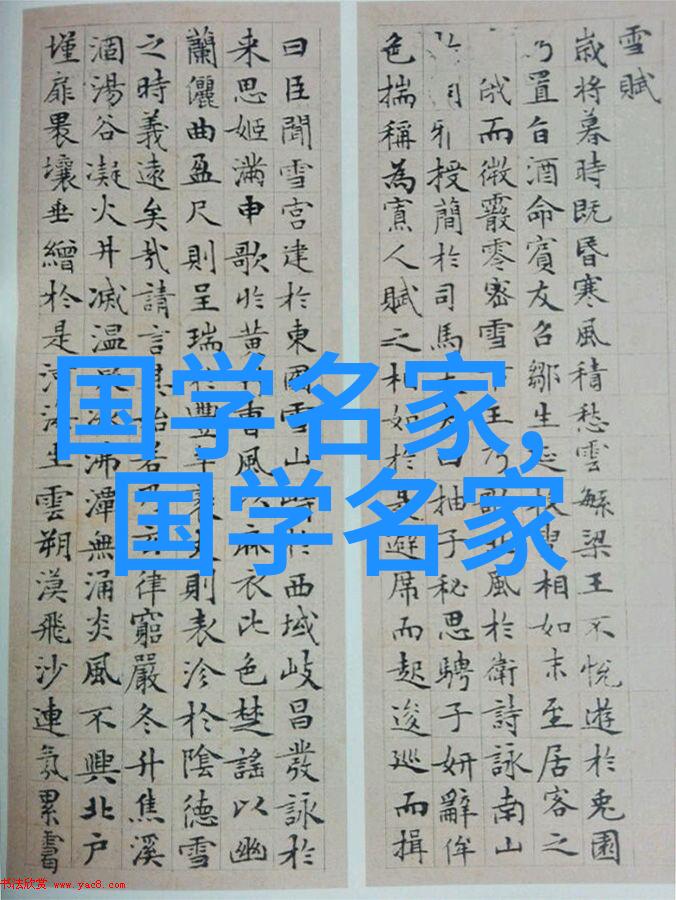 雪賦
歲將暮時既昏寒風積愁雲緐梁王不悅遊於兔園
乃置旨酒命賓友召鄒生延枚叟相如末至居客之
俄而微霰零密雪下王乃歌北風於衛詩詠南山
雅授簡於司馬大夫曰抽子秘思騁子妍辭侔
色揣稱為寡人賦之相如於是避席而起逡巡而揖
曰臣聞雪宮建於東國雪山峙於西域岐昌發詠於
來思姬滿申歌於黃竹曹風以麻衣比色楚謠以幽
蘭儷曲盈尺則呈瑞於豐年袤丈則表沴於陰德雪
之時義遠矣哉請言其始若乃玄律窮嚴冬升焦溪
涸湯谷凝火井滅溫泉冰沸潭無涌炎風不興北户
墐扉壤垂繒於是河海生雲朔漠飛沙連氛累靄
国学名家,
国学名家
书法欣赏 www.yac8.com